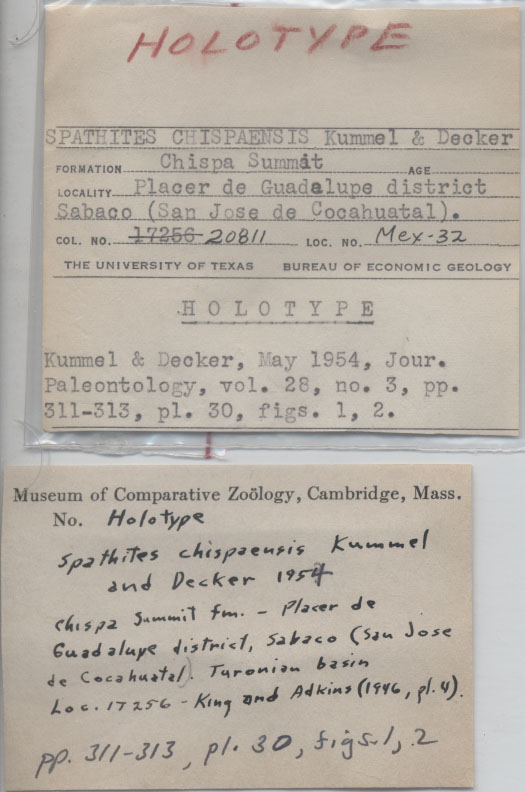 HOLOTYPE
SPATHITES CHISPAENSIS Kummel & Decker
FORMATION Chispa Summit AGE
LOCALITY Placer de Guadalupe district
Sabaco (San Jose de Cocahuatal).
COL. NO. 17256 20811 LOC. NO. Mex-32
THE UNIVERSITY OF TEXAS BUREAU OF ECONOMIC GEOLOGY
HOLOTYPE
Kummel & Decker, May 1954, Jour.
Paleontology, vol. 28, no. 3, pp.
311-313, pl. 30, figs. 1, 2.
Museum of Comparative Zoölogy, Cambridge, Mass.
No. Holotype
Spathites chispaensis Kummel
and Decker 1954
Chispa Summit fm. - Placer de
Guadalupe district, Sabaco (San Jose
de Cocahuatal). Turonian basin
Loc. 17256 - King and Adkins (1946, pl. 4).
pp. 311-313, pl. 30, figs. 1, 2